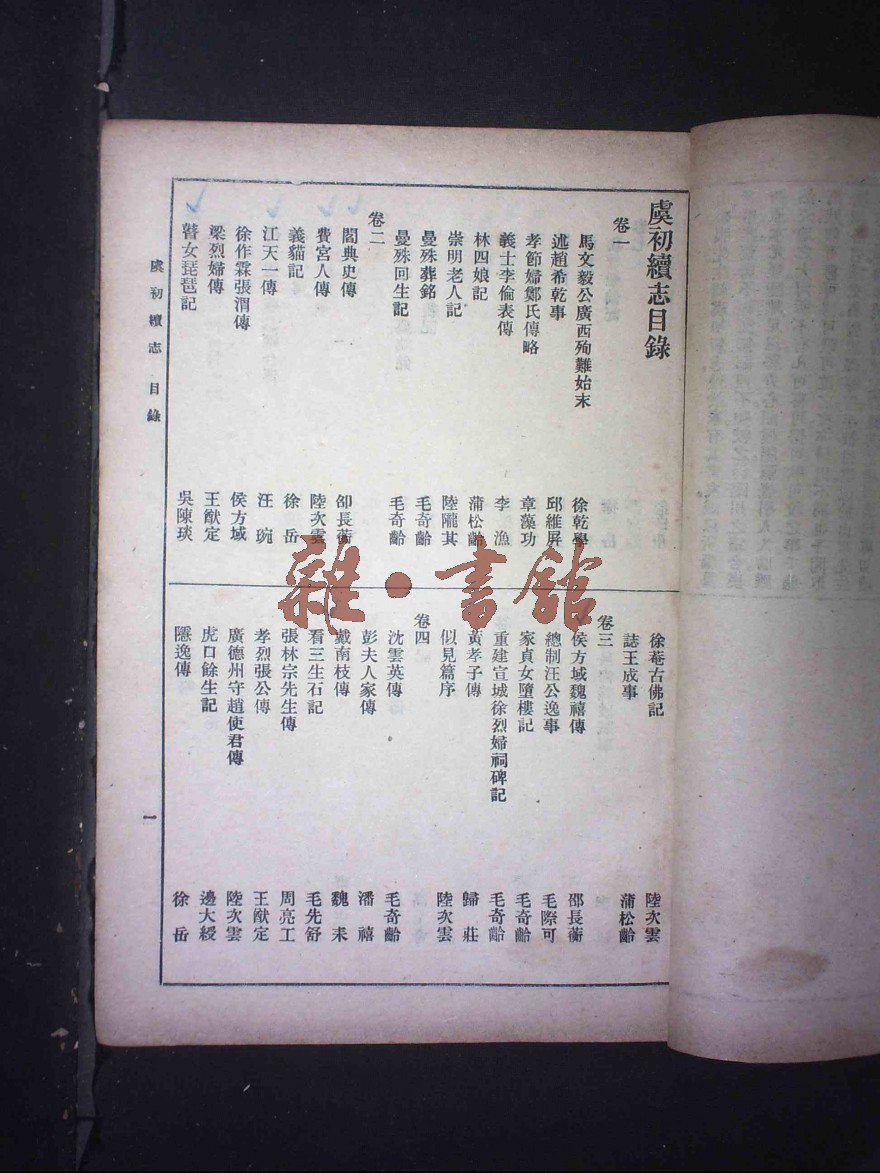 虞初續志目錄
卷一
馬文毅公廣西殉難始末 徐乾學
述趙希乾事 邱維屏
孝節婦鄭氏傳略 章藻功
義士李倫表傳 李漁
林四娘記 蒲松齡
崇明老人記 陸隴其
曼殊葬銘 毛奇齡
曼殊回生記 毛奇齡
卷二
閻典史傳 邵長蘅
費宮人傳 陸次雲
義貓記 徐岳
江天一傳 汪琬
徐作霖張渭傳 侯方域
梁烈婦傳 王猷定
瞽女琵琶記 吳陳琰
徐菴古佛記 陸次雲
誌王成事 蒲松齡
卷三
侯方域魏禧傳 邵長蘅
總制汪公逸事 毛際可
家貞女墮樓記 毛奇齡
重建宣城徐烈婦祠碑記 毛奇齡
黃孝子傳 歸莊
似見篇序 陸次雲
卷四
沈雲英傳 毛奇齡
彭夫人家傳 潘禧
戴南枝傳 魏耒
看三生石記 毛先舒
張林宗先生傳 周亮工
孝烈張公傳 王猷定
廣德州守趙使君傳 陸次雲
虎口餘生記 邊大綬
隱逸傳 徐岳
虞初續志 目錄
一
雜·書館